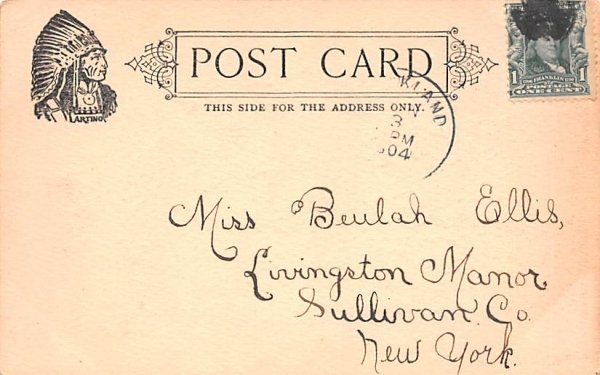 POST CARD
THIS SIDE FOR THE ADDRESS ONLY.
ARTINO
KLAND
3
PM
04
1 FRANKLIN 1
POSTAGE
ONE CENT
Miss Beulah Ellis,
Livingston Manor
Sullivan Co.
New York.